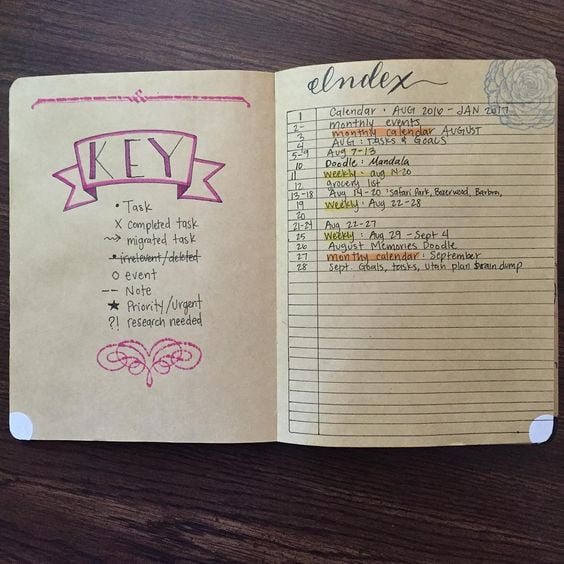 KEY
• Task
X completed task
migrated task
• irrelevent/deleted
o event
-- Note
★ Priority/Urgent
?! research needed
Index
1 Calendar • AUG 2016 - JAN 2017
2- monthly events
3 monthly calendar AUGUST
4 AUG : Tasks & Goals
5-9 Aug 7-13
10 Doodle : Mandala
11 weekly • aug 14-20
12 grocery list
13-18 Aug 14-20 : Safari Park,
19 weekly • Aug 22-28
20
21-24 Aug 22-27
25 Weekly : Aug 29 - Sept 4
26 August Memories Doodle
27 monthy calendar : September
28 Sept. Goals, tasks, utah plan Brain dump